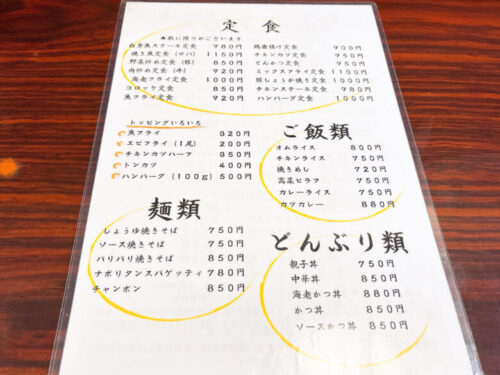 定食
★飯に限りがございます
白身魚ステール定食 980円
焼き魚定食(サバ) 1150円
野菜炒め定食(豚) 850円
肉炒め定食(牛) 920円
海老フライ定食 1000円
コロッケ定食 850円
魚フライ定食 920円
鶏唐揚げ定食 900円
チキンカツ定食 750円
とんかつ定食 950円
ミックスフライ定食 1100円
豚しょうが焼き定食 1000円
チキンステール定食 980円
ハンバーグ定食 1000円
トッピングいろいろ
魚フライ 320円
エビフライ(1尾) 200円
チキンカツハーフ 350円
トンカツ 400円
ハンバーグ(100g) 500円
ご飯類
オムライス 800円
チキンライス 750円
焼きめし 720円
高菜ピラフ 750円
カレーライス 750円
カツカレー 880円
麺類
しょうゆ焼きそば 750円
ソース焼きそば 750円
パリパリ焼きそば 850円
ナポリタンスパゲッティ 780円
チャンポン 850円
どんぶり類
親子丼 750円
中華丼 850円
海老かつ丼 880円
かつ丼 850円
ソースかつ丼 850円